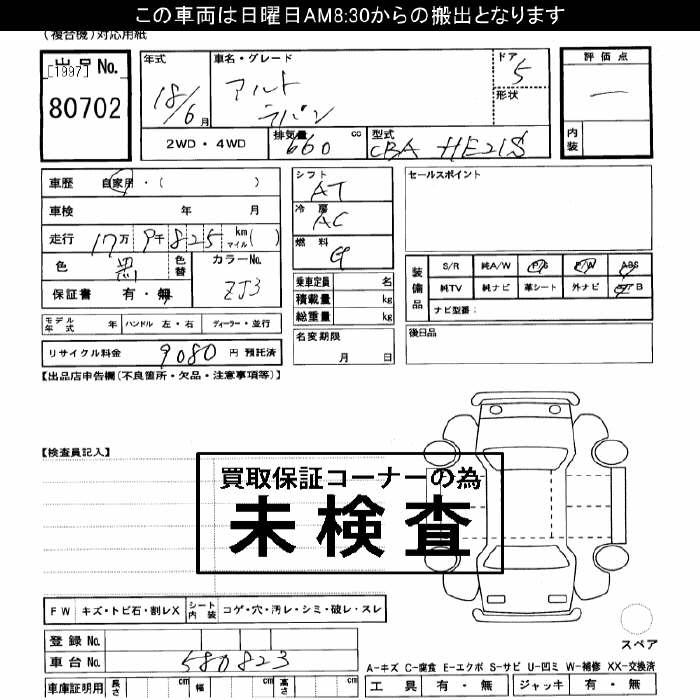 この車両は日曜日AM8:30からの搬出となります
(複合機)対応用紙
出品No.
[1997]
80702
年式
18/6月
車名・グレード
アルト
ラパン
ドア
5
形状
評価点
内装
2WD・4WD
排気量
660 cc
型式
CBA HE21S
車歴 自家用・( )
車検 年 月
走行 17万9千825 km マイル( )
色 黒 色替
カラーNo.
ZJ3
保証書 有・無
モデル年式 年 ハンドル 左・右 ディーラー・並行
リサイクル料金 9080 円 預託済
シフト
AT
冷房
AC
燃料
G
乗車定員 名
積載量 kg
総重量 kg
名変期限
月 日
セールスポイント
装備品
S/R 純A/W P/S P/W ABS
純TV 純ナビ 革シート 外ナビ エアB
ナビ型番:
後日品
【出品店申告欄(不良箇所・欠品・注意事項等)】
【検査員記入】
買取保証コーナーの為
未検査
FW キズ・トビ石・割レX シート内装 コゲ・穴・汚レ・シミ・破レ・スレ
登録No.
車台No. 580823
車庫証明用 長さ cm 幅 cm 高さ cm
スペア
A-キズ C-腐食 E-エクボ S-サビ U-凹ミ W-補修 XX-交換済
工具 有・無 ジャッキ 有・無